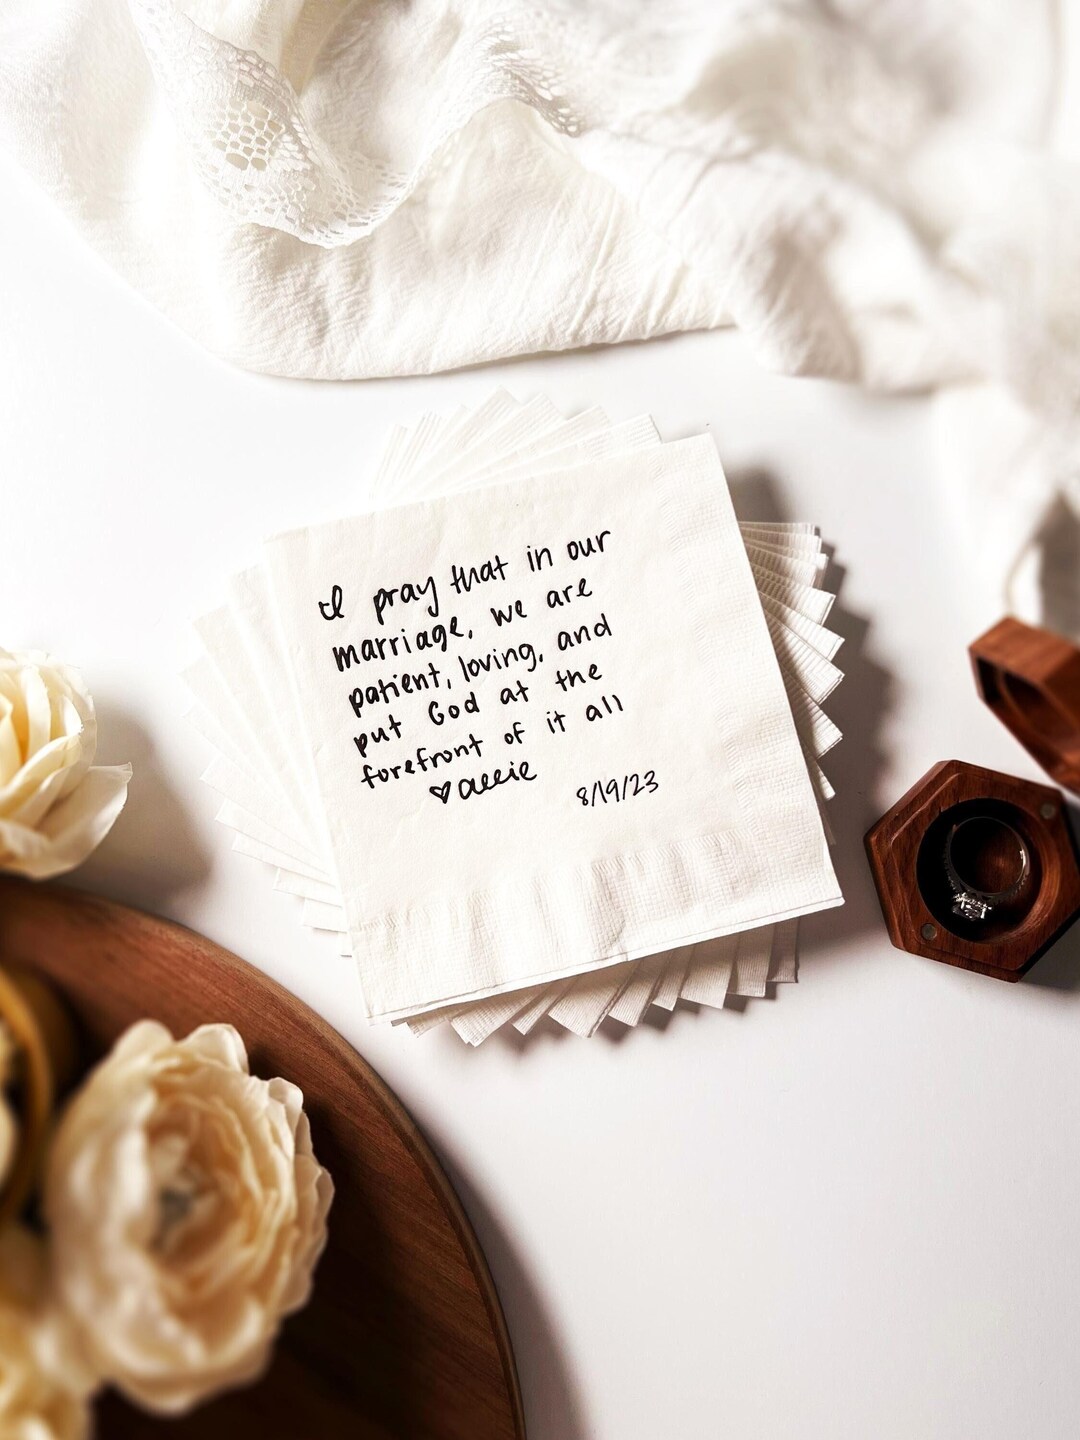 I pray that in our
marriage, we are
patient, loving, and
put God at the
forefront of it all
♡ allie
8/19/23